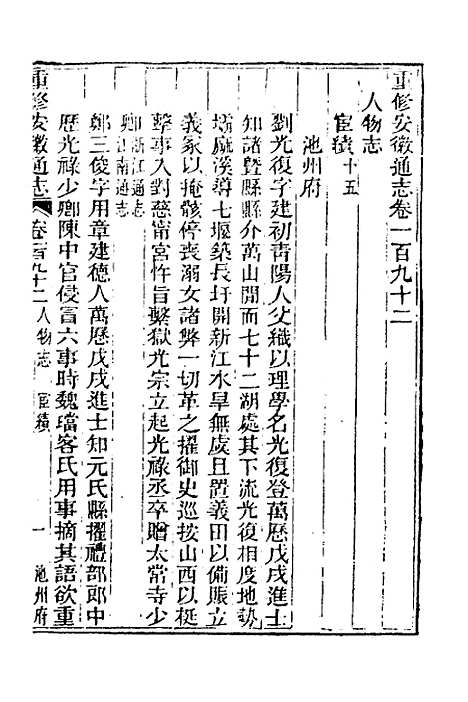 重修安徽通志卷一百九十二
人物志
宦績十五
池州府
劉光復字建初青陽人父織以理學名光復登萬歷戊戌進士
知諸暨縣縣介萬山間而七十二湖處其下流光復相度地勢
濬溪導七堰築長圩開新江水旱無虞且置義田以備賑立
義冢以掩骸停喪溺女諸弊一切革之擢御史巡按山西以梃
擊事入對慈甯宮忤旨繫獄光宗立起光祿丞卒贈太常寺少
卿浙江通志
山西通志
鄭三俊字用章建德人萬歷戊戌進士知元氏縣擢禮部郎中
歷光祿少卿陳中官侵冒六事時魏璫客氏用事摘其語欲重
重修安徽通志 卷一百九十二 人物志 宦績 一 池州府